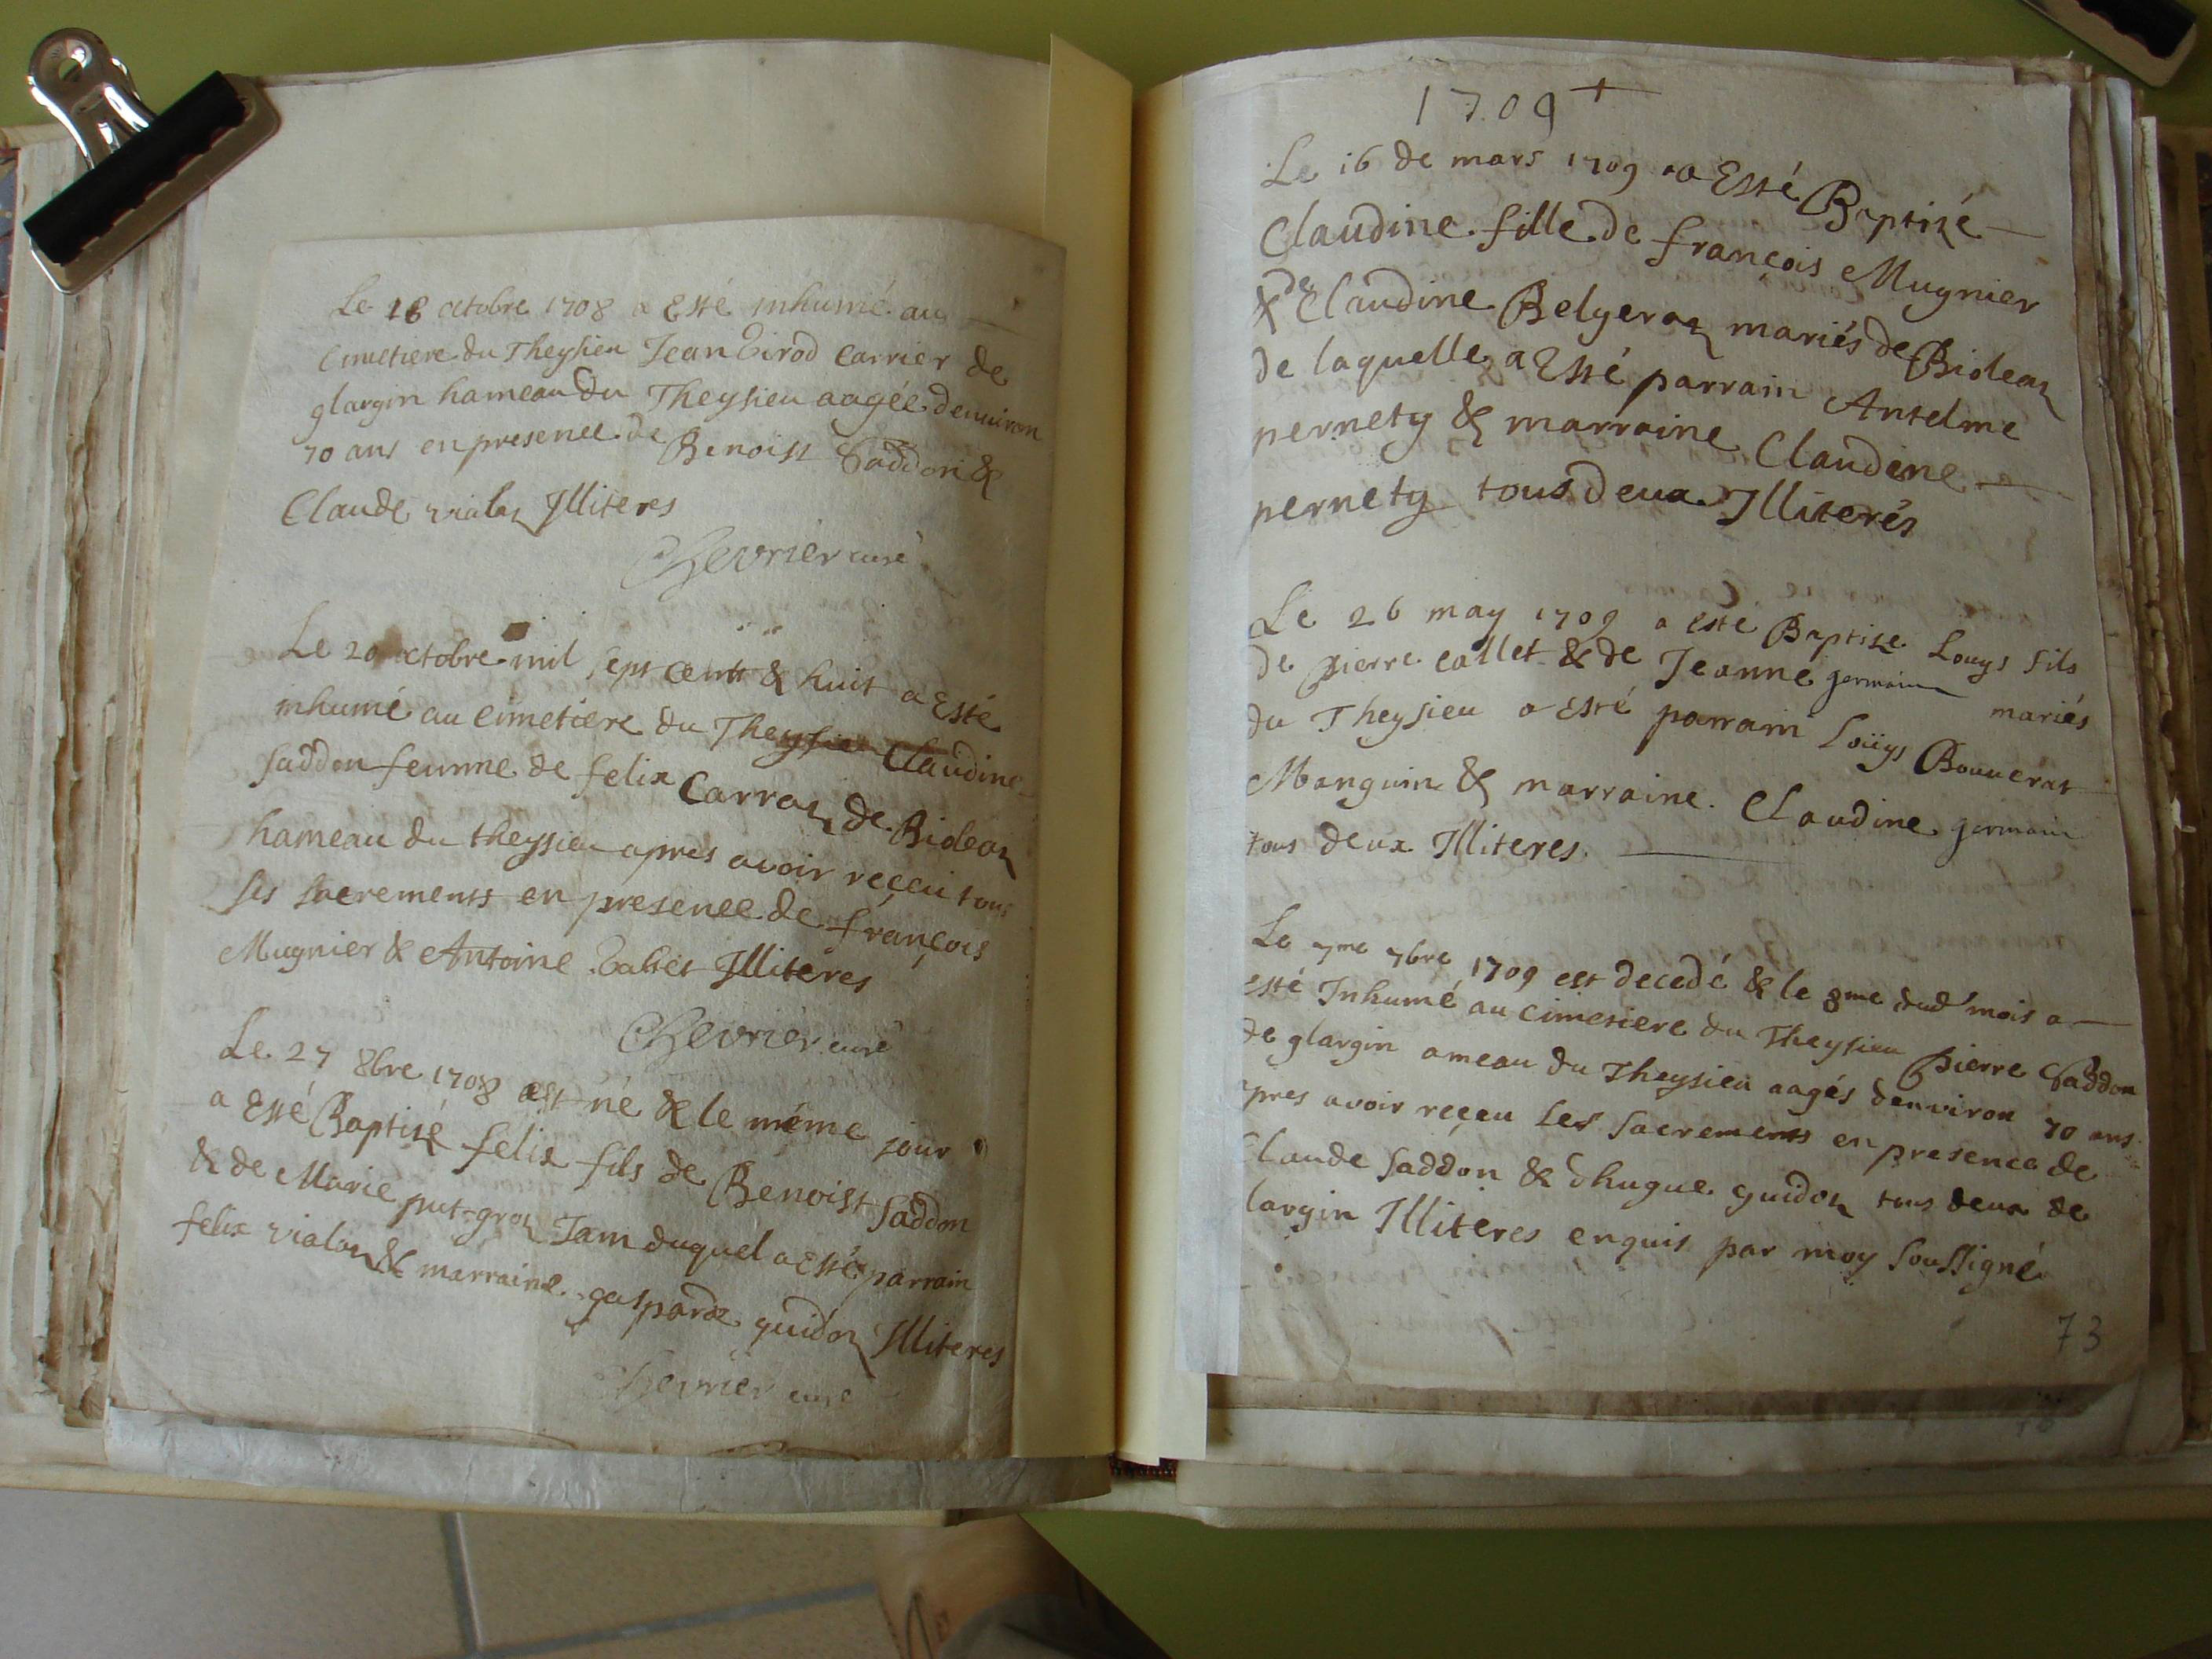 Le 18 octobre 1708 a Esté inhumé au
Cimetiere du Theysieu Jean Tirod Carrier de
glargin hameau du Theysieu aagée denuiron
70 ans en presence de Benoist Saddon &
Claude vialaz Illiteres
Chevrier curé
Le 20 octobre mil sept cents & huit a Esté
inhumé au Cimetiere du Theysieu Claudine
Saddon femme de felix Carraz de Bioleaz
hameau du theysieu apres avoir reçeu tous
ses sacrements en presence de françois
Mugnier & Antoine Illiteres
Chevrier curé
Le 27 8bre 1708 est né & le méme jour
a Esté Baptizé felix fils de Benoist Saddon
& de Marie put-groz Jam duquel a Esté parrain
felix vialaz & marraine gasparde guidoz Illiteres
Chevrier curé
1709
Le 16 de mars 1709 a Esté Baptizé
Claudine fille de françois Mugnier
& de Claudine Belyeraz mariés de Bioleaz
de laquelle a Esté parrain Antelme
pernety & marraine Claudine
pernety tous deux Illiterés
Le 26 may 1709 a esté Baptize Louys fils
de pierre callet & de Jeanne germain mariés
du Theysieu a Esté parrain Loüys Bouuerat
Manguin & marraine Claudine germain
tous deux Illiteres.
Le 7me 7bre 1709 est decedé & le 8me dud mois a
esté Inhumé au cimetiere du Theysieu pierre Saddon
de glargin ameau du Theysieu aagés denviron 70 ans
apres avoir reçeu les sacrements en presence de
Claude saddon & thugue guidoz tous deux de
largin Illiteres enquis par moy soussigné
73